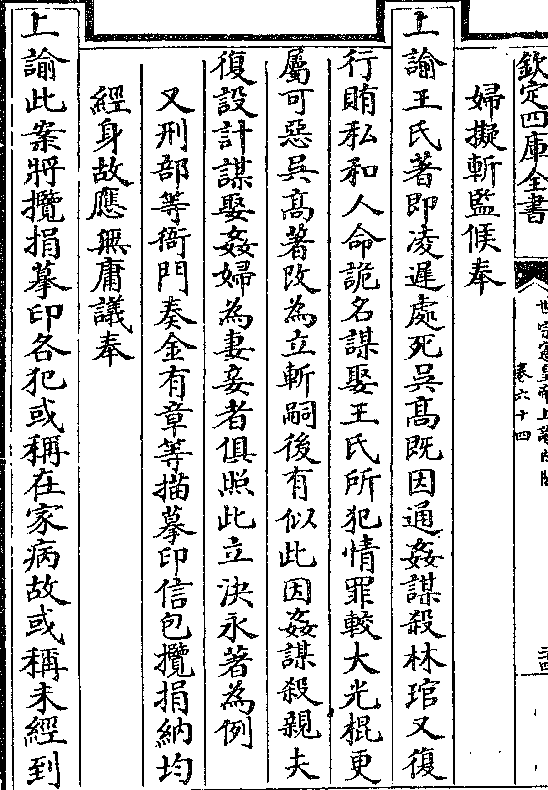 欽定四庫全書
世宗憲皇帝上諭内閣
卷六十四
婦擬斬監候奉
上諭王氏著即凌遲處死吳髙既因通姦謀殺林琯又復
行賄私和人命詭名謀娶王氏所犯情罪較大光棍更
屬可惡吳髙著改為立斬嗣後有似此因姦謀殺親夫
復設計謀娶姦婦為妻妾者俱照此立決永著為例
又刑部等衙門奏金有章等描摹印信包攬捐納均
經身故應無庸議奉
上諭此案將攬捐摹印各犯或稱在家病故或稱未經到